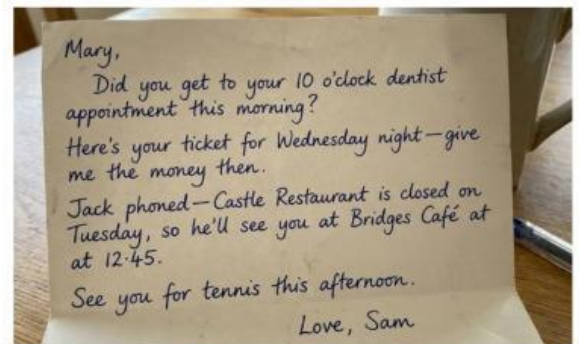 Mary,
Did you get to your 10 o'clock dentist
appointment this morning?
Here's your ticket for Wednesday night—give
me the money then.
Jack phoned—Castle Restaurant is closed on
Tuesday, so he'll see you at Bridges Café at
at 12·45.
See you for tennis this afternoon.
Love, Sam